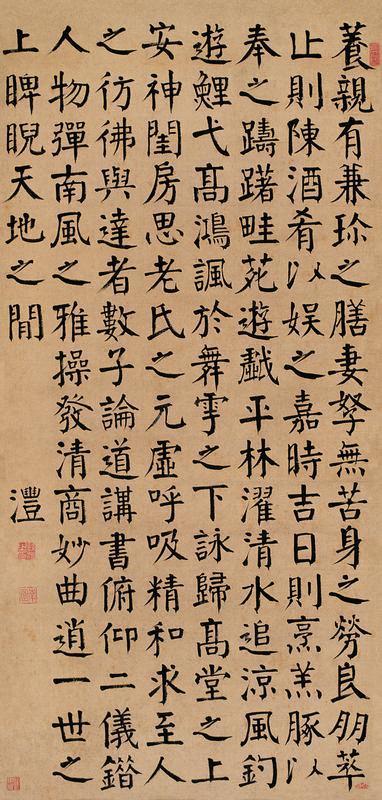 養親有兼珍之膳妻孥無苦身之勞良朋萃
止則陳酒肴以娛之嘉時吉日則烹羔豚以
奉之躊躇畦苑遊戲平林濯清水追涼風釣
遊鯉弋髙鴻諷於舞雩之下詠歸髙堂之上
安神閨房思老氏之元虛呼吸精和求至人
之彷彿與達者數子論道講書俯仰二儀錯
人物彈南風之雅操發清商妙曲逍一世之
上睥睨天地之閒
灃